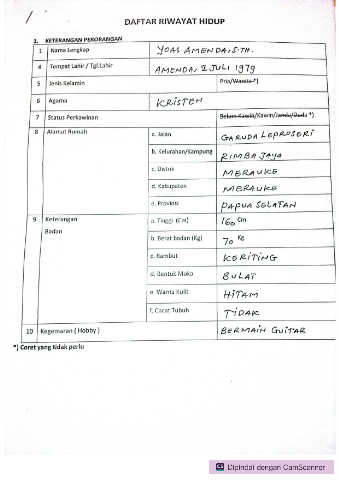 DAFTAR RIWAYAT HIDUP
1. KETERANGAN PERORANGAN
1 Nama Lengkap YOAS AMENDA, S.TH.
4 Tempat Lahir / Tgl.Lahir AMENDA, 2 JULI 1979
5 Jenis Kelamin Pria/Wanita *)
6 Agama KRISTEN
7 Status Perkawinan Belum Kawin/Kawin/Janda/Duda *)
8 Alamat Rumah a. Jalan GARUDA LEPROSERI
b. Kelurahan/Kampung RIMBA JAYA
c. Distrik MERAUKE
d. Kabupaten MERAUKE
e. Provinsi PAPUA SELATAN
9 Keterangan Badan a. Tinggi (Cm) 160 Cm
b. Berat badan (Kg) 70 Kg
c. Rambut KERITING
d. Bentuk Muka BULAT
e. Warna Kulit HITAM
f. Cacat Tubuh TIDAK
10 Kegemaran ( Hobby ) BERMAIN GUITAR
*) Coret yang tidak perlu
CS Dipindai dengan CamScanner